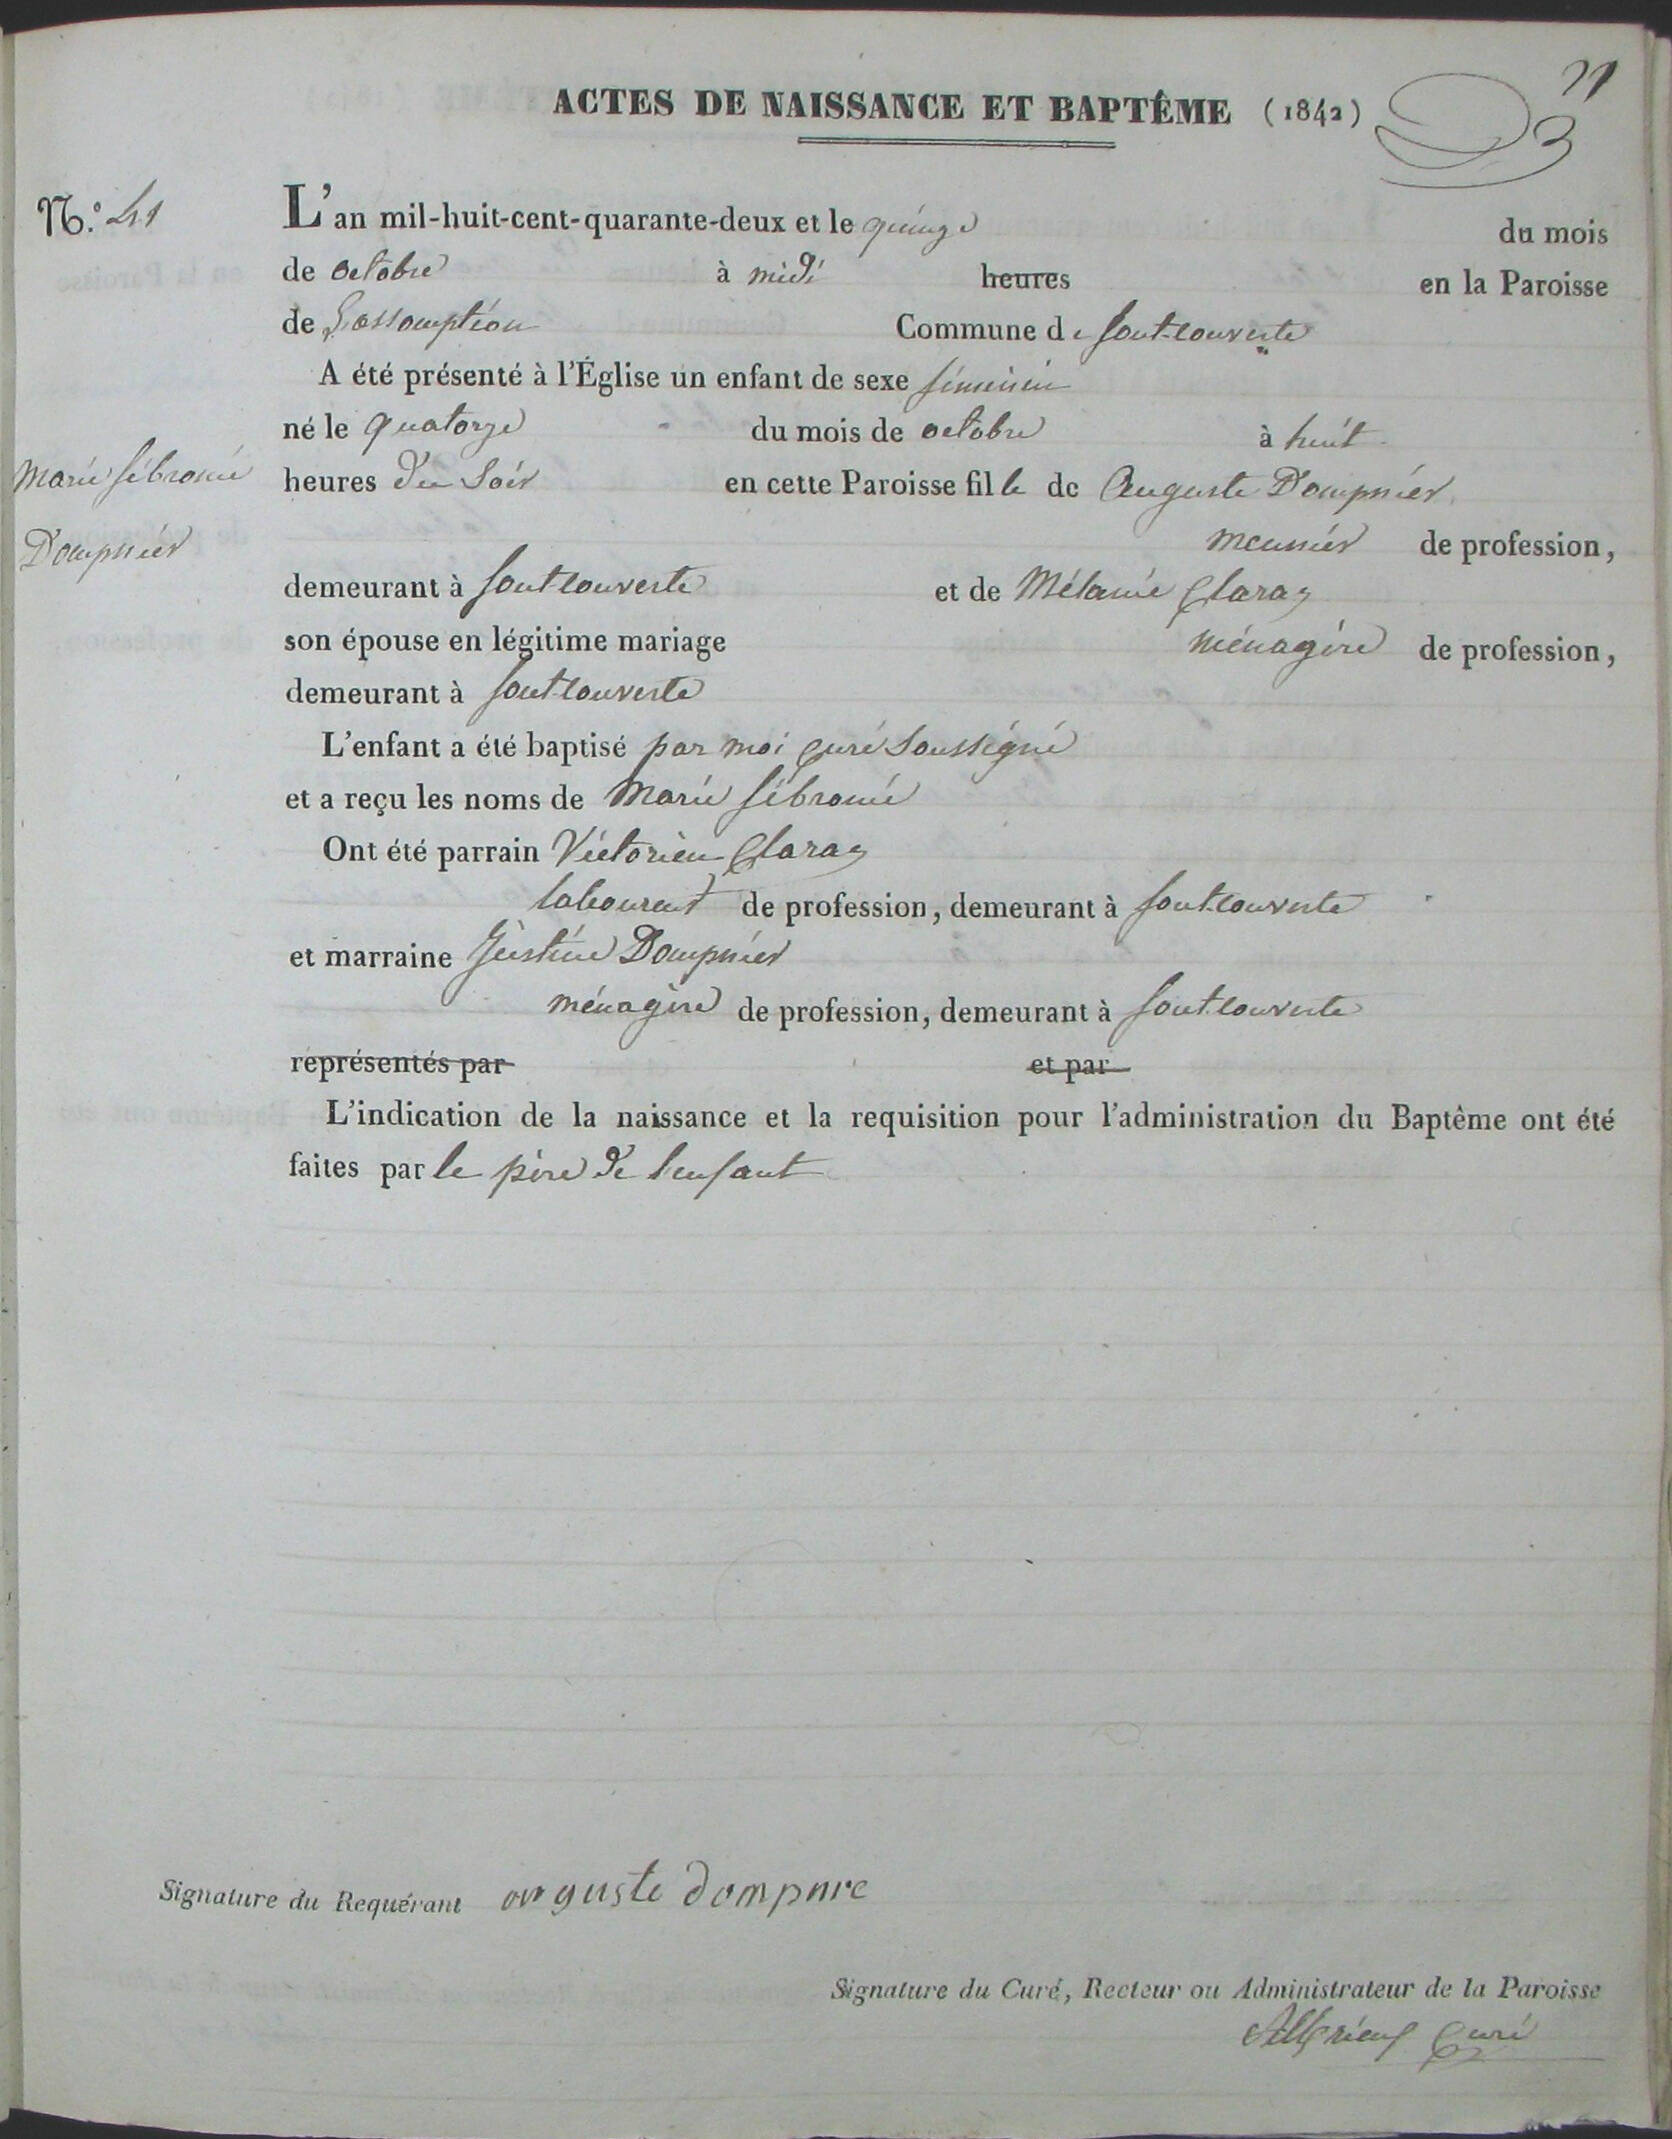 ACTES DE NAISSANCE ET BAPTÊME (1842)
N.° 41
L'an mil-huit-cent-quarante-deux et le quinze du mois
de octobre à midi heures en la Paroisse
de L'assomption Commune de Font-couverte
A été présenté à l'Église un enfant de sexe féminin
né le quatorze du mois de octobre à huit
Marie Fébronie
Dompnier
heures du soir en cette Paroisse fille de Auguste Dompnier
meunier de profession,
demeurant à Font-couverte et de Mélanie Claraz
son épouse en légitime mariage ménagère de profession,
demeurant à Font-couverte
L'enfant a été baptisé par moi curé soussigné
et a reçu les noms de Marie Fébronie
Ont été parrain Victorien Claraz
laboureur de profession, demeurant à Font-couverte
et marraine Justine Dompnier
ménagère de profession, demeurant à Font-couverte
représentés par et par
L'indication de la naissance et la requisition pour l'administration du Baptême ont été
faites par le père de l'enfant
Signature du Requérant auguste dompnie
Signature du Curé, Recteur ou Administrateur de la Paroisse
curé